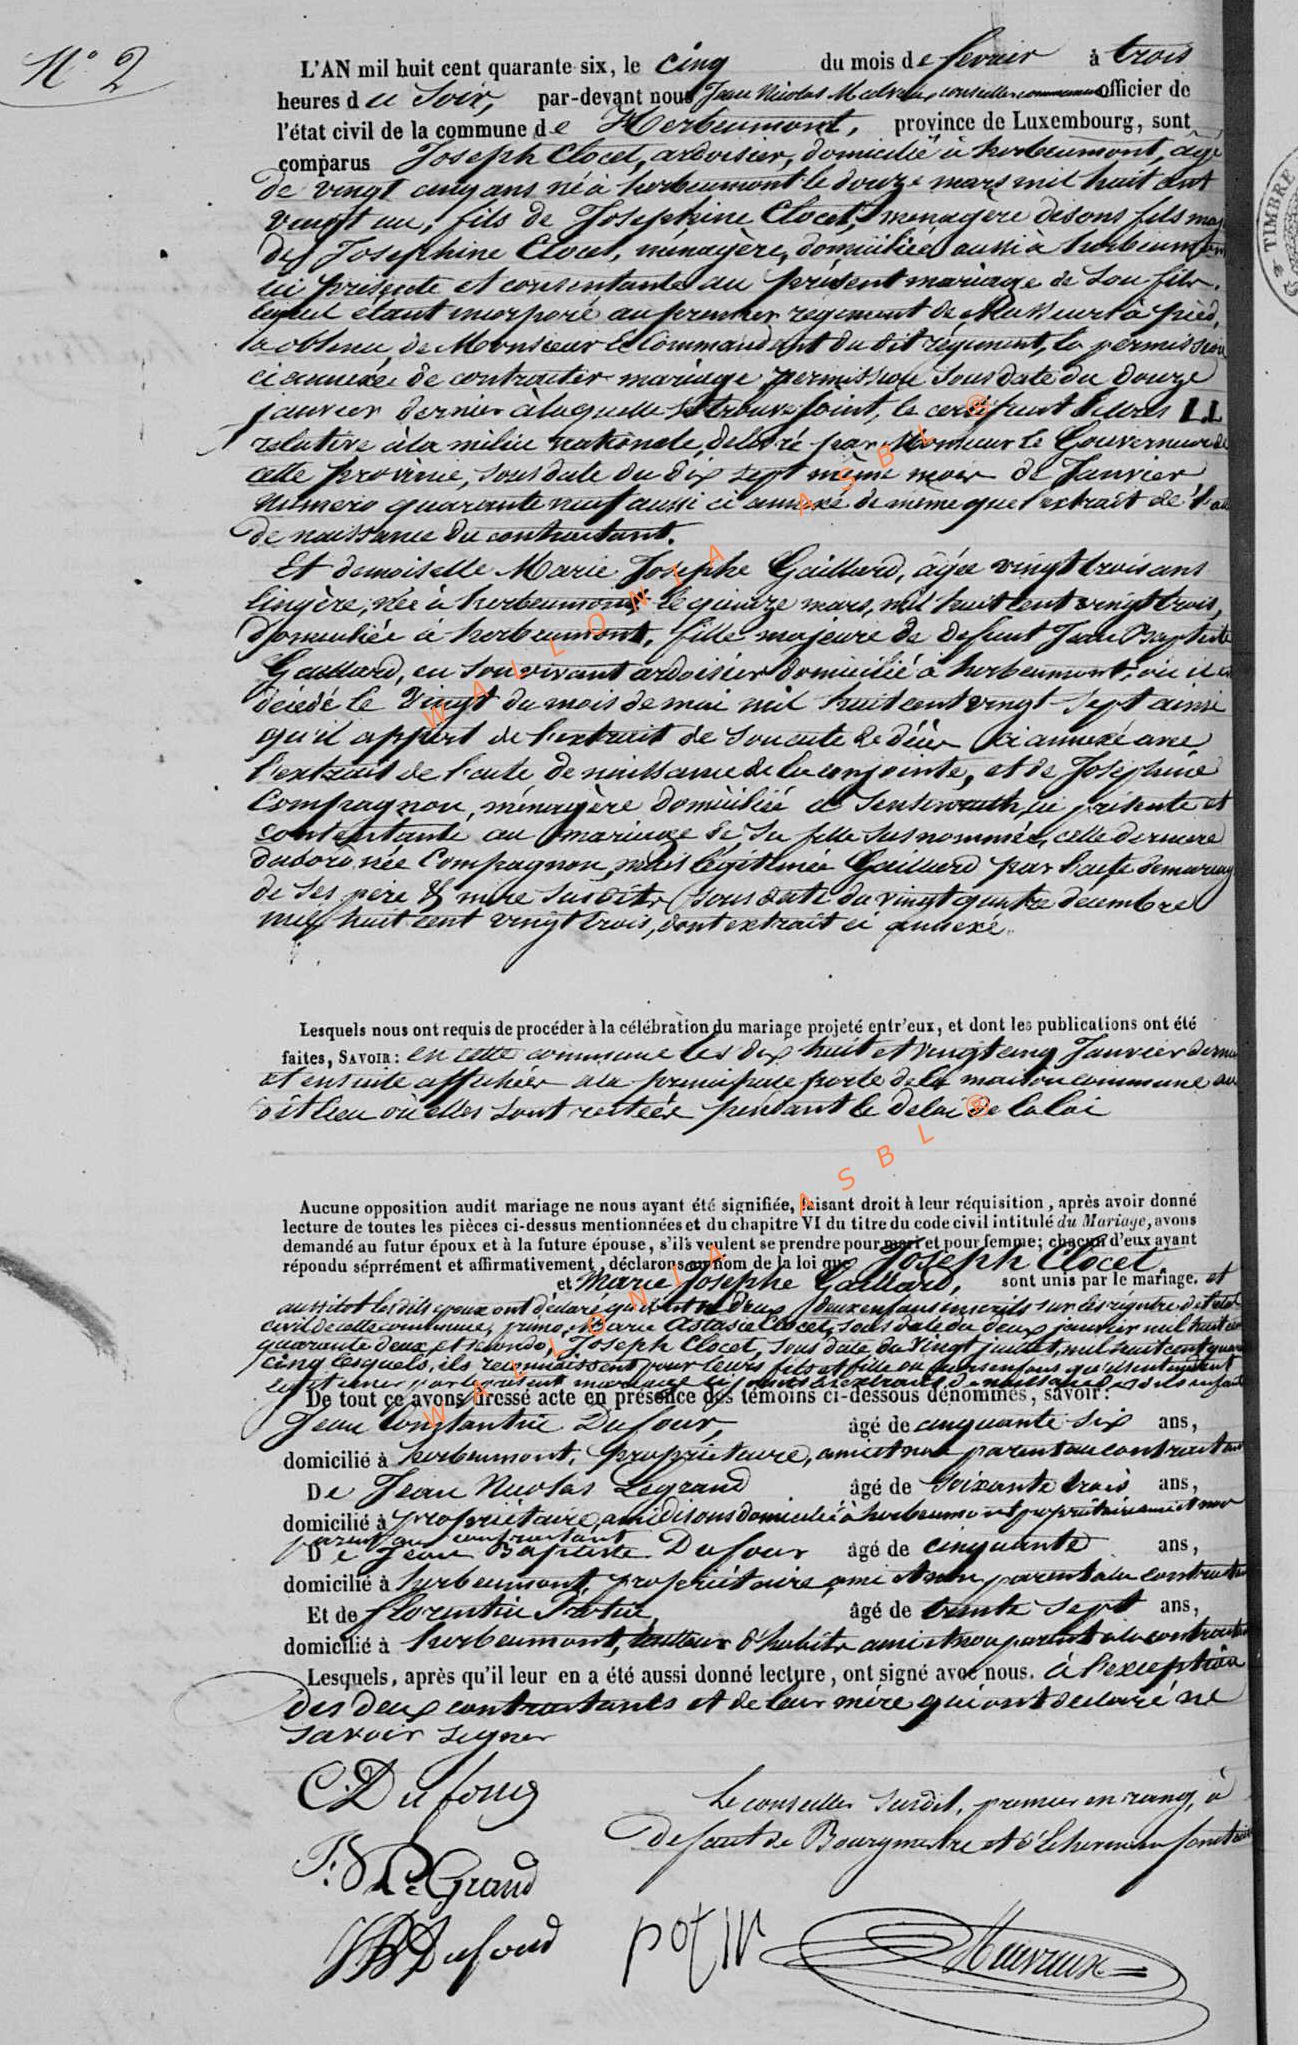 N° 2
L'AN mil huit cent quarante-six, le cinq du mois de fevrier à trois
heures du Soir, par-devant nous Jean Nicolas conseiller communal officier de
l'état civil de la commune de Herbeumont, province de Luxembourg, sont
comparus Joseph Clocet, ardoisier, domicilié à herbeumont, âgé
de vingt cinq ans né à herbeumont le douze mars mil huit cent
vingt un, fils de Josephine Clocet, ménagère disons fils maj
de Josephine Clocet, ménagère, domiciliée aussi à herbeumont
ici présente et consentante au présent mariage de son fils.
lequel étant incorporé au premier régiment de Chasseurs à pied,
a obtenu de Monsieur le Commandant du dit régiment, la permission
ci annexée de contracter mariage, permission sous date du douze
janvier dernier à laquelle se trouve joint, le certificat Littera LL
relative à la milice nationale, délivré par Monsieur le Gouverneur de
cette province, sous date du dix sept même mois de Janvier
numero quarante neuf aussi ci annexé de même que l'extrait de l'acte
de naissance du contractant.
Et demoiselle Marie Josephe Gaillard, âgée vingt trois ans
lingère, née à herbeumont le quinze mars, mil huit cent vingt trois,
domiciliée à herbeumont, fille majeure de defunt Jean Baptiste
Gaillard, en son vivant ardoisier domicilié à herbeumont, où il est
décédé le vingt du mois de mai mil huit cent vingt-sept ainsi
qu'il appert de l'extrait de son acte de décès ci annexé avec
l'extrait de l'acte de naissance de la conjointe, et de Joséphine
Compagnon, ménagère domiciliée à ici présente et
consentante au mariage de sa fille susnommée, cette derniere
d'abord née Compagnon, mais légitimée Gaillard par l'acte de mariage
de ses père & mère susdits sous date du vingt quatre decembre
mil huit cent vingt trois, dont extrait ci annexé.
Lesquels nous ont requis de procéder à la célébration du mariage projeté entr'eux, et dont les publications ont été
faites, SAVOIR: en cette commune les dix huit et vingt cinq Janvier dernier
et ensuite affichées à la principale porte de la maison commune au
dit lieu où elles sont restées pendant le délai de la loi
Aucune opposition audit mariage ne nous ayant été signifiée, faisant droit à leur réquisition, après avoir donné
lecture de toutes les pièces ci-dessus mentionnées et du chapitre VI du titre du code civil intitulé du Mariage, avons
demandé au futur époux et à la future épouse, s'ils veulent se prendre pour mari et pour femme; chacun d'eux ayant
répondu séprrément et affirmativement, déclarons au nom de la loi que Joseph Clocet
et Marie Josephe Gaillard, sont unis par le mariage. et
aussitôt les dits époux ont déclaré qu'il est né d'eux deux enfans inscrits sur les régistre de l'état
civil de cette commune, primo, Marie Astasie Clocet, sous date du deux janvier mil huit cent
quarante deux, et secondo, Joseph Clocet, sous date du vingt juillet, mil huit cent quarante
cinq lesquels, ils reconnaissent pour leurs fils et fille
legitimer par le présent mariage
De tout ce avons dressé acte en présence des témoins ci-dessous dénommés, savoir:
Jean Constantin Dufour, âgé de cinquante six ans,
domicilié à herbeumont, propriétaire, ami et non parent au contractant
De Jean Nicolas Legrand âgé de soixante trois ans,
domicilié à propriétaire, ami disons domicilié à herbeumont propriétaire ami et non
parent au contractant
De Jean Baptiste Dufour âgé de cinquante ans,
domicilié à herbeumont, propriétaire, ami et non parent au contractant
Et de florentin Potin, âgé de trente sept ans,
domicilié à herbeumont, tailleur d'habits ami et non parent à la contractante
Lesquels, après qu'il leur en a été aussi donné lecture, ont signé avec nous. à l'exception
des deux contractants et de leur mère qui ont déclaré ne
savoir signer
C. Dufour
Le conseiller susdit, premier en rang, à
defaut de Bourgmestre et d'Echevin en fonction
Le Grand
JB Dufour
potin
WALLONIA ASBL ®
WALLONIA ASBL ®
TIMBRE